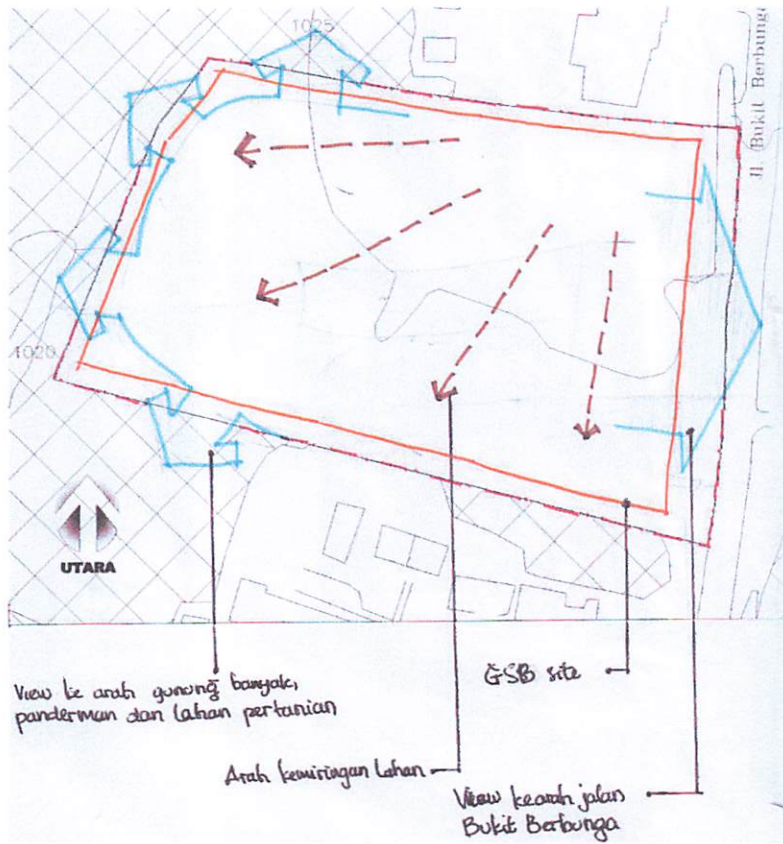 1025
Jl. Bukit Berbunga
1020
UTARA
View ke arah gunung banyak,
panderman dan lahan pertanian
GSB site
Arah kemiringan lahan
View kearah jalan
Bukit Berbunga